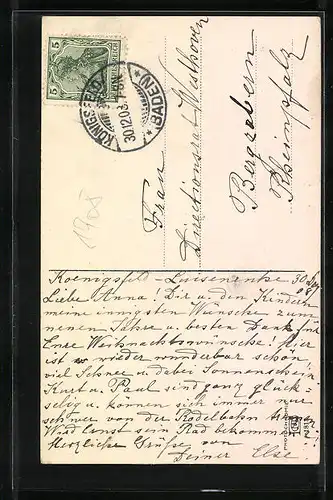 5
5
KÖNIGSFELD
30.12.08
* (BADEN) *
1908
Frau
Directionsrat Westhoven
Bergzabern
Rheinpfalz
Koenigsfeld - Luisenruhe 30 Dez
08
Liebe Anna! Dir u. den Kindern
meine innigsten Wünsche zum
neuen Jahre u. besten Dank für
Eure Weihnachtswünsche! Hier
ist es wieder wunderbar schön
viel Schnee u. dabei Sonnenschein
Kurt u. Paul sind ganz glück-
selig u. können sich immer nur
schwer von der Rodelbahn trennen
Wird Ernst sein Rad bekommen?
Herzliche Grüße von
Deiner Else